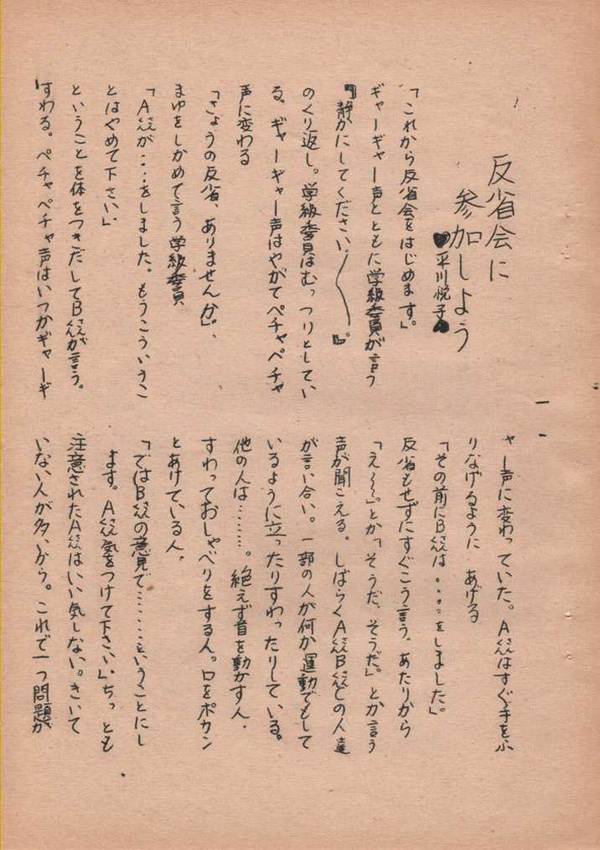 反省会に
参加しよう
♥平川悦子♠
「これから反省会をはじめます。」
ギャーギャー声とともに学級委員が言う
『静かにしてください〜〜。』
のくり返し。学級委員はむっつりとしてい
る。ギャーギャー声はやがてペチャペチャ
声に変わる
「きょうの反省、ありませんか」、
まゆをしかめて言う学級委員
「Aさんが・・・をしました。もうこういうこ
とはやめて下さい。」
ということを体をつきだしてBさんが言う。
すわる。ペチャペチャ声はいつかギャーギ
ャー声に変わっていた。Aさんはすぐ手をふ
りなげるように あげる
「その前にBさんは・・・・をしました」
反省もせずにすぐこう言う。あたりから
「え〜〜」とか「そうだ、そうだ。」とか言う
声が聞こえる。しばらくAさんBさんとの人達
が言い合い。一部の人が何か運動でもして
いるように立ったりすわったりしている。
他の人は……。絶えず首を動かす人、
すわっておしゃべりをする人。口をポカン
とあけている人、
「ではBさんの意見で……ということにし
ます。Aさん気をつけて下さい」ちっとも
注意されたAさんはいい気しない。きいて
いない人が多いから。これで一つ問題が